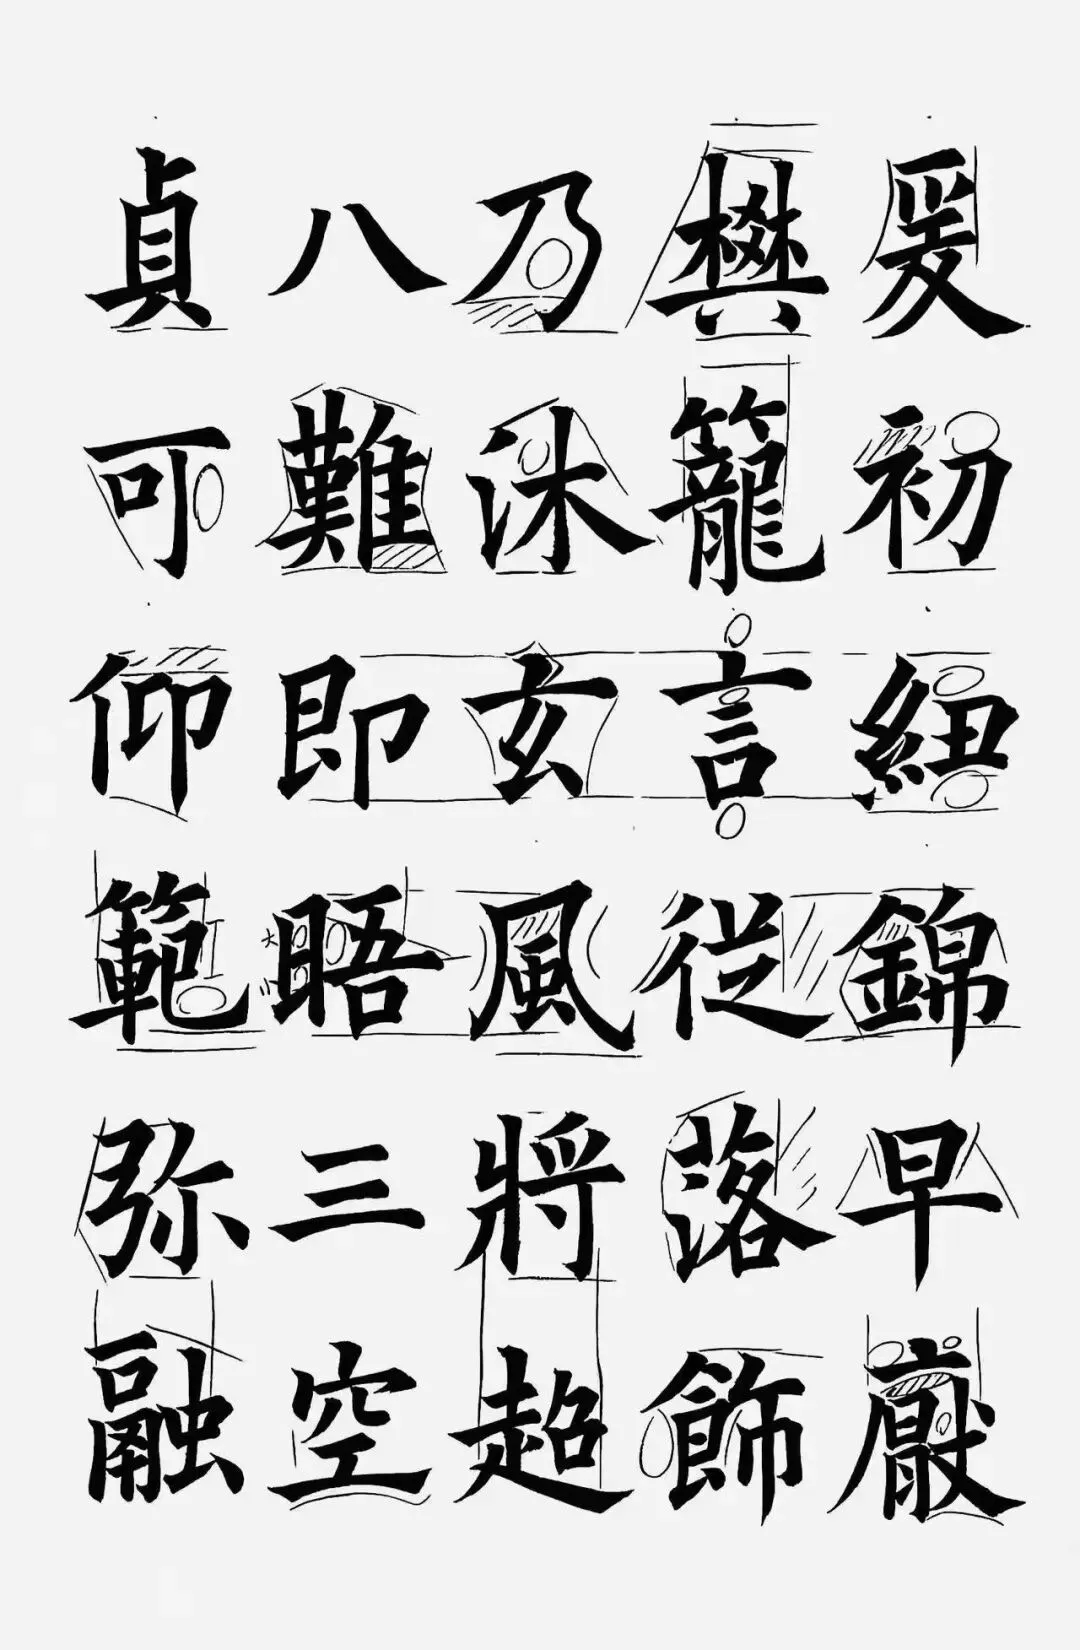 爰初紐錦早厭
樊籠言從落飾
乃沐玄風將超
八難即晤三空
貞可仰範弥融